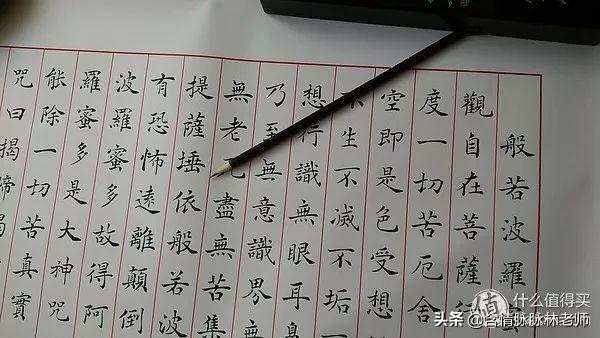 般若波羅
觀自在菩薩
度一切苦厄舍
空即是色受想
不生不滅不垢
想行識無眼耳
乃至無意識界無
無老盡無苦集
提薩埵依般若波
有恐怖遠離顛倒
波羅蜜多故得阿
羅蜜多是大神咒
能除一切苦真實
咒曰揭諦揭
值 什么值得买
头条 @含情脉脉林老师